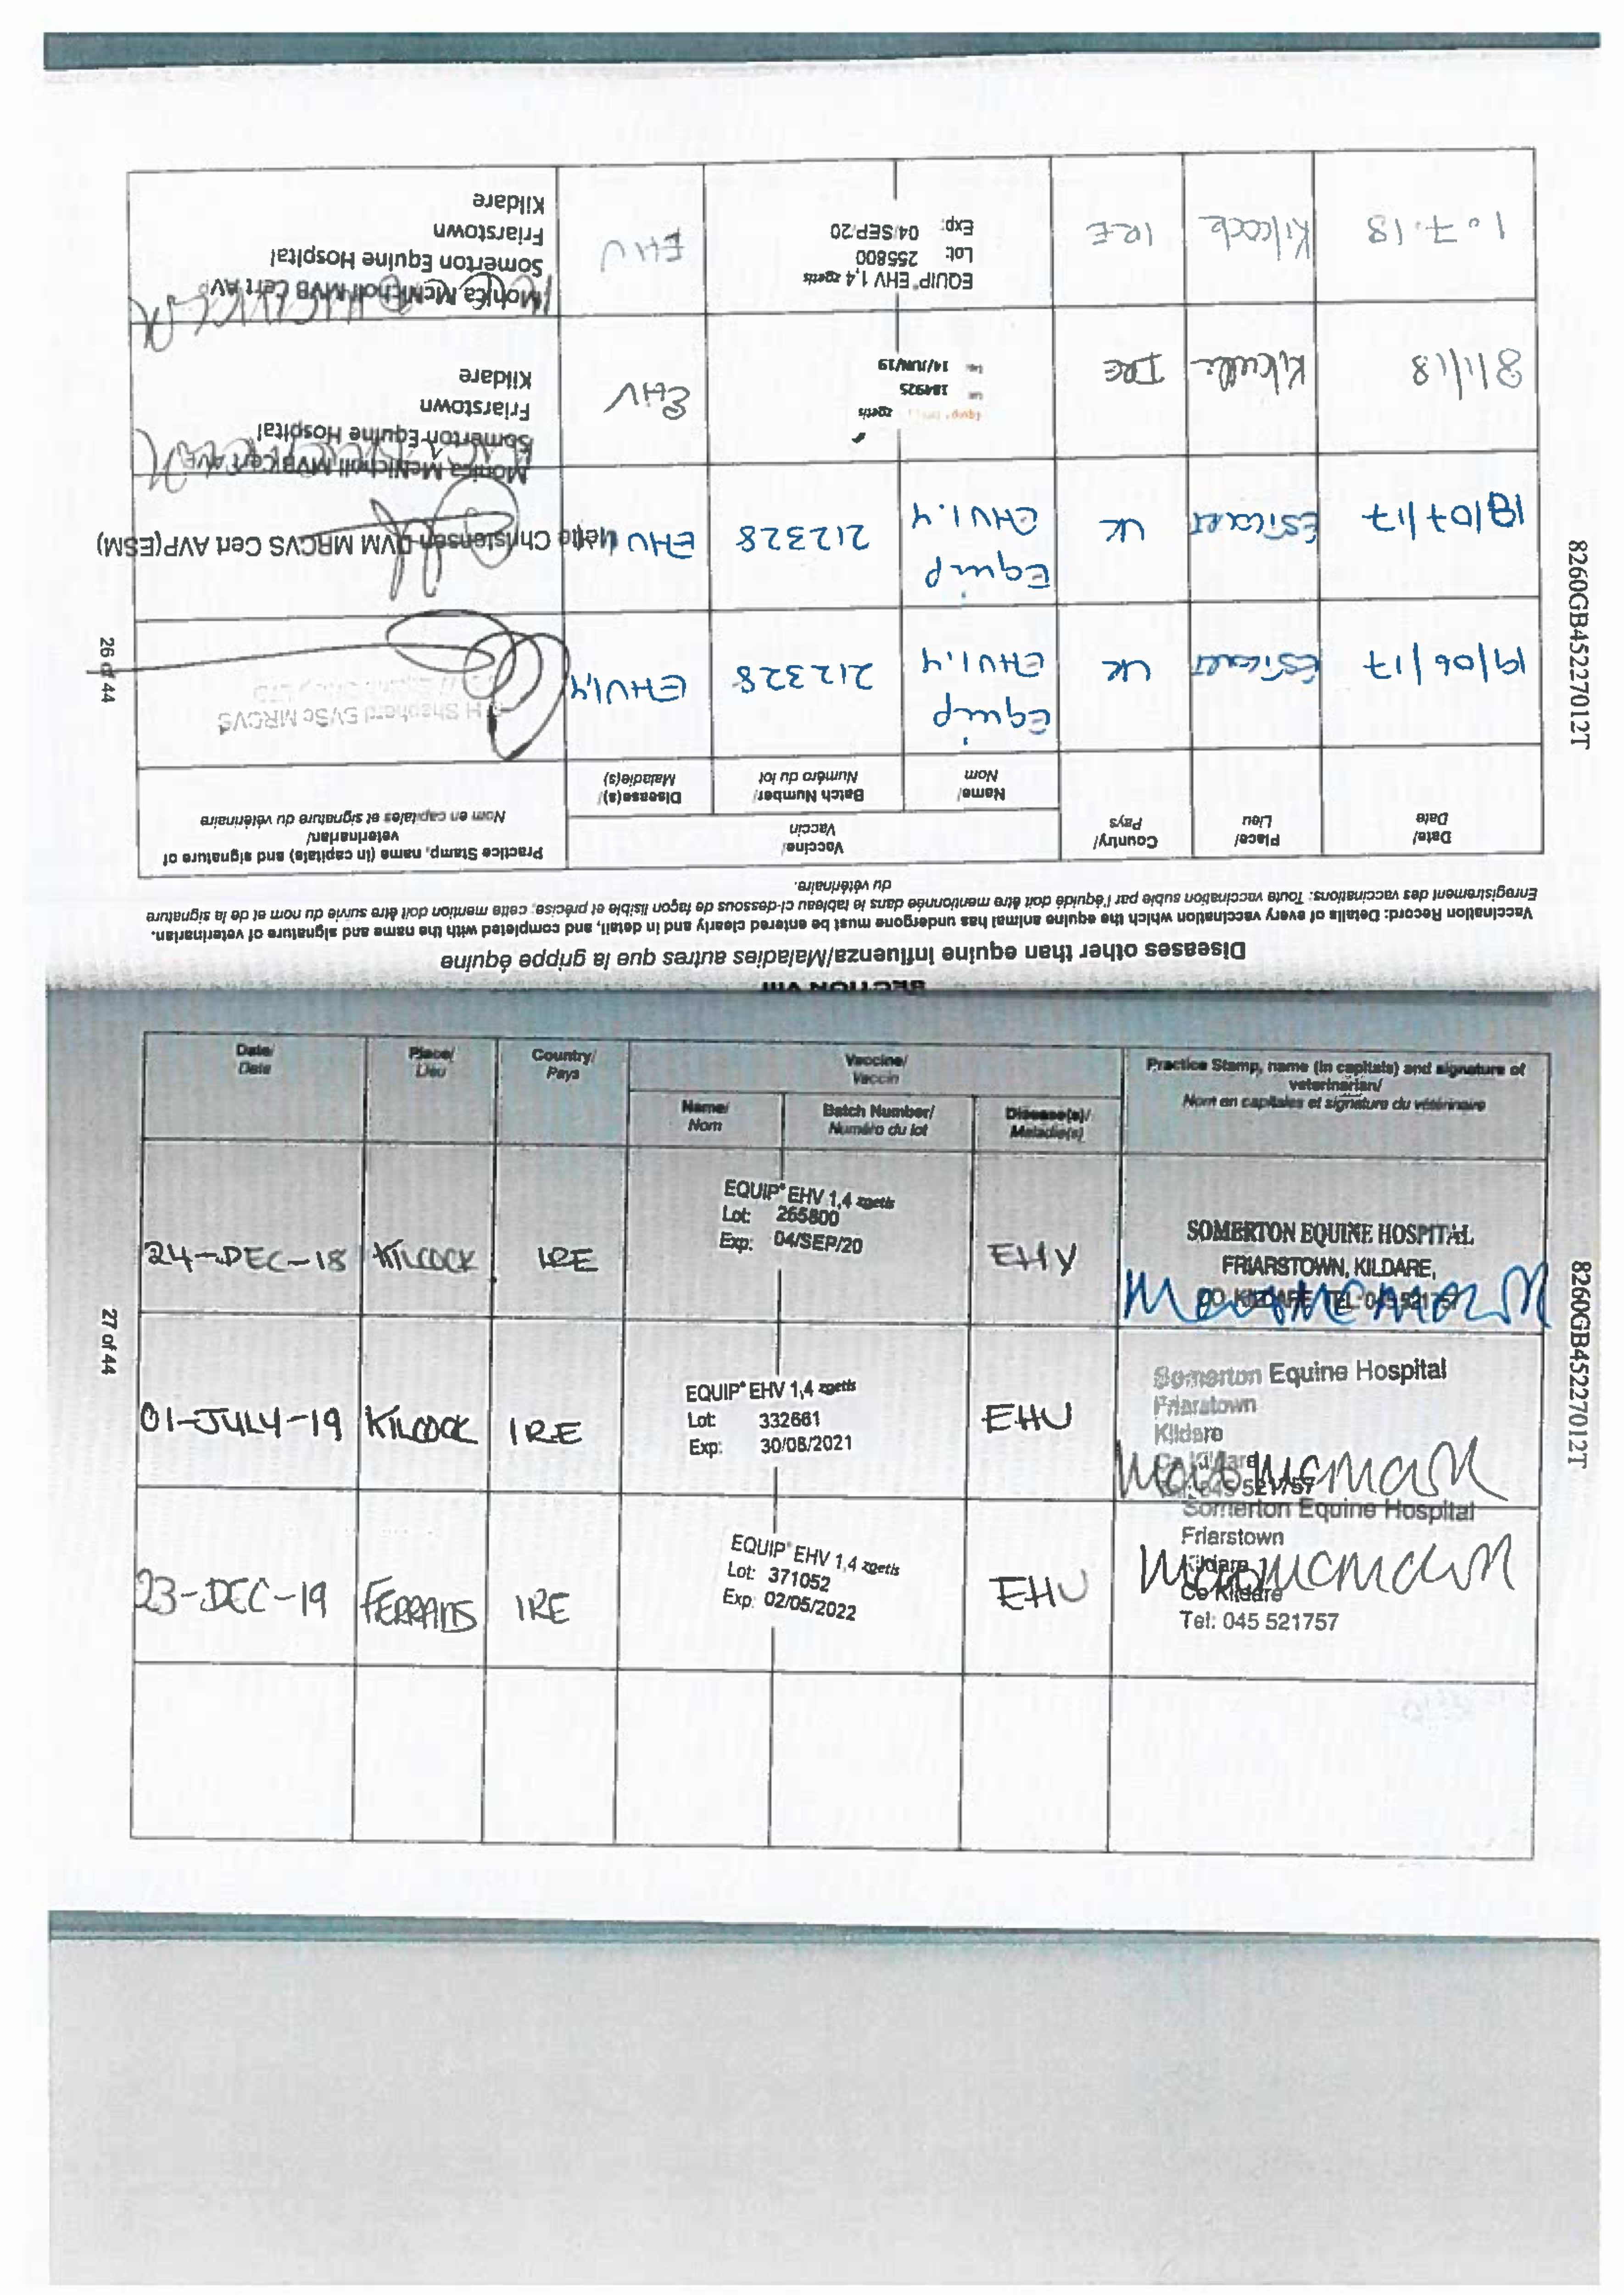 SECTION VIII
Diseases other than equine Influenza/Maladies autres que la grippe équine
Vaccination Record: Details of every vaccination which the equine animal has undergone must be entered clearly and in detail, and completed with the name and signature of veterinarian.
Enregistrement des vaccinations: Toute vaccination subie par l'équidé doit être mentionnée dans le tableau ci-dessous de façon lisible et précise; cette mention doit être suivie du nom et de la signature
du vétérinaire.
Date/ Date
Place/ Lieu
Country/ Pays
Vaccine/ Vaccin
Practice Stamp, name (in capitals) and signature of
veterinarian/
Nom en capitales et signature du vétérinaire
Name/ Nom
Batch Number/ Numéro du lot
Disease(s)/ Maladie(s)
19/06/17 UK Equip EHV1.4 212328 EHV1,4
H Shepherd BVSc MRCVS
19/07/17 UK Equip EHV1.4 212328 EHV Mette Christensen DVM MRCVS Cert AVP(ESM)
8/1/18 IRE zoetis
184925
14/JUN/19
EHV
Monica McNicholl MVB Cert AVP
Somerton Equine Hospital
Friarstown
Kildare
1.7.18 Kilcock IRE
EQUIP® EHV 1,4 zoetis
Lot: 255800
Exp: 04/SEP/20
EHV
Monica McNicholl MVB Cert AVP
Somerton Equine Hospital
Friarstown
Kildare
26 of 44
8260GB45227012T
Date/ Date
Place/ Lieu
Country/ Pays
Vaccine/ Vaccin
Practice Stamp, name (in capitals) and signature of
veterinarian/
Nom en capitales et signature du vétérinaire
Name/ Nom
Batch Number/ Numéro du lot
Disease(s)/ Maladie(s)
24-DEC-18 KILCOCK IRE
EQUIP® EHV 1,4 zoetis
Lot: 255800
Exp: 04/SEP/20
EHV
SOMERTON EQUINE HOSPITAL
FRIARSTOWN, KILDARE,
CO. KILDARE TEL: 045 521757
01-JULY-19 KILCOCK IRE
EQUIP® EHV 1,4 zoetis
Lot: 332661
Exp: 30/08/2021
EHV
Somerton Equine Hospital
Friarstown
Kildare
Co Kildare
Tel: 045 521757
23-DEC-19 FERRANS IRE
EQUIP® EHV 1,4 zoetis
Lot: 371052
Exp: 02/05/2022
EHV
Somerton Equine Hospital
Friarstown
Kildare
Co Kildare
Tel: 045 521757
27 of 44
8260GB45227012T